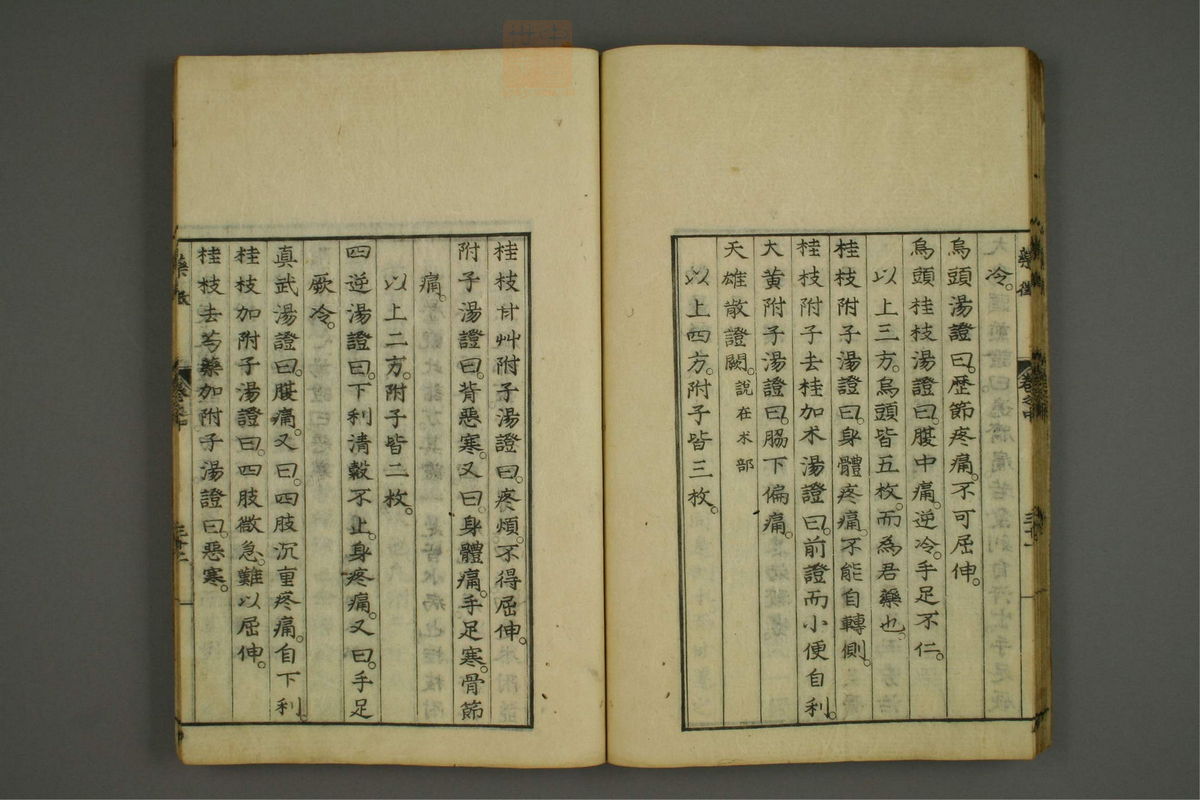 冷。
烏頭湯證曰。歷節疼痛。不可屈伸。
烏頭桂枝湯證曰。腹中痛。逆冷。手足不仁。
以上三方。烏頭皆五枚。而為君藥也。
桂枝附子湯證曰。身體疼痛。不能自轉側。
桂枝附子去桂加朮湯證曰。前證而小便自利。
大黃附子湯證曰。脇下偏痛。
天雄散證闕。說在朮部
以上四方。附子皆三枚。
桂枝甘艸附子湯證曰。疼煩。不得屈伸。
附子湯證曰。背惡寒。又曰。身體痛。手足寒。骨節
痛。
以上二方。附子皆二枚。
四逆湯證曰。下利清穀不止。身疼痛。又曰。手足
厥冷。
真武湯證曰。腹痛。又曰。四肢沉重疼痛。自下利。
桂枝加附子湯證曰。四肢微急。難以屈伸。
桂枝去芍藥加附子湯證曰。惡寒。
藥徵
卷之中
三十二